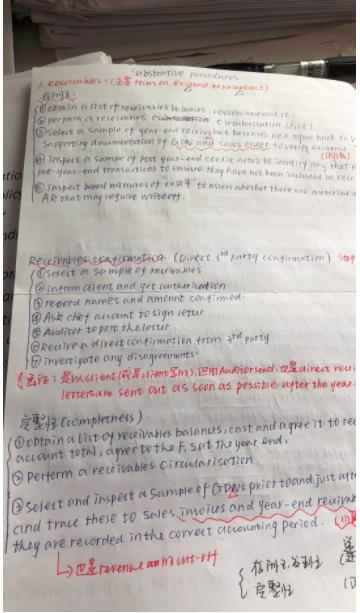 Substantive procedures
1. Receivables: (主要 focus on existence & valuation)
①obtain a list of receivables balances, review and cast it.
②perform a receivables circularisation
③select a sample of year-end receivables balances and agree back to
supporting documentation of GDN and sales order to verify existence
④inspect a sample of post year-end credit notes to identify any that
pre-year-end transactions to ensure they have not been included in
⑤Inspect board minutes of "xx公司" to assess whether there are material
AR that may require write off.
Receivables confirmation (Direct 3rd party confirmation) Step
①select a sample of receivables
②inform client and get authorization
③record names and amount confirmed.
④Ask chef accant to sign letter
⑤Auditor to post the letter
⑥Receive a direct confirmation from 3rd party
⑦investigate any disagreements.
letters are sent out as soon as possible after the year-
完整性 (Completness)
①obtain a list of receivables balances, cast and agree it to
account total, agree to the F.S at the year end,
②Perform a receivables Circularisation
③Select and inspect a sample of GDNs prior to and just
and trace these to sales invoices and year-end
they are recorded in the correct accounting period.
↳也是 revenue 的 cut-off
完整性